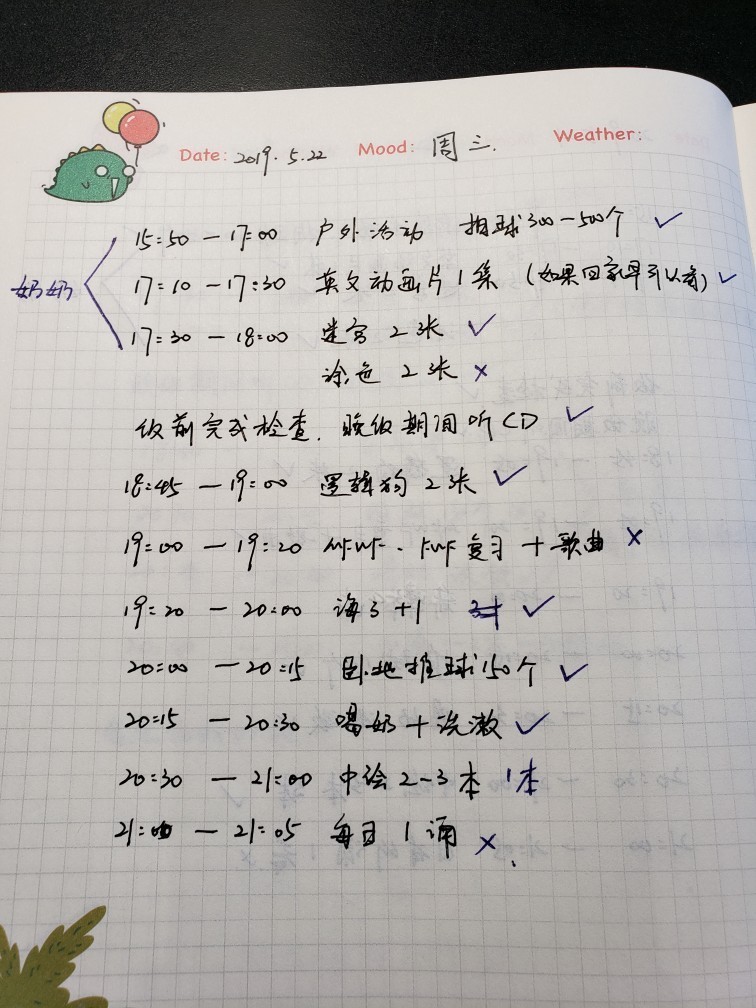 Date: 2019.5.22 Mood: 周三. Weather:
15:50 — 17:00 户外活动 拍球300—500个 ✓
奶奶 17:10 — 17:30 英文动画片1集 (如果回家早可以看) ✓
17:30 — 18:00 迷宫 2张 ✓
涂色 2张 ×
饭前完成检查. 晚饭期间听CD ✓
18:45 — 19:00 逻辑狗 2张 ✓
19:00 — 19:20 复习+歌曲 ×
19:20 — 20:00 海3+1 ✓
20:00 — 20:15 卧地推球150个 ✓
20:15 — 20:30 喝奶+洗漱 ✓
20:30 — 21:00 中绘2-3本 1本
21:00 — 21:05 每日1诵 ×